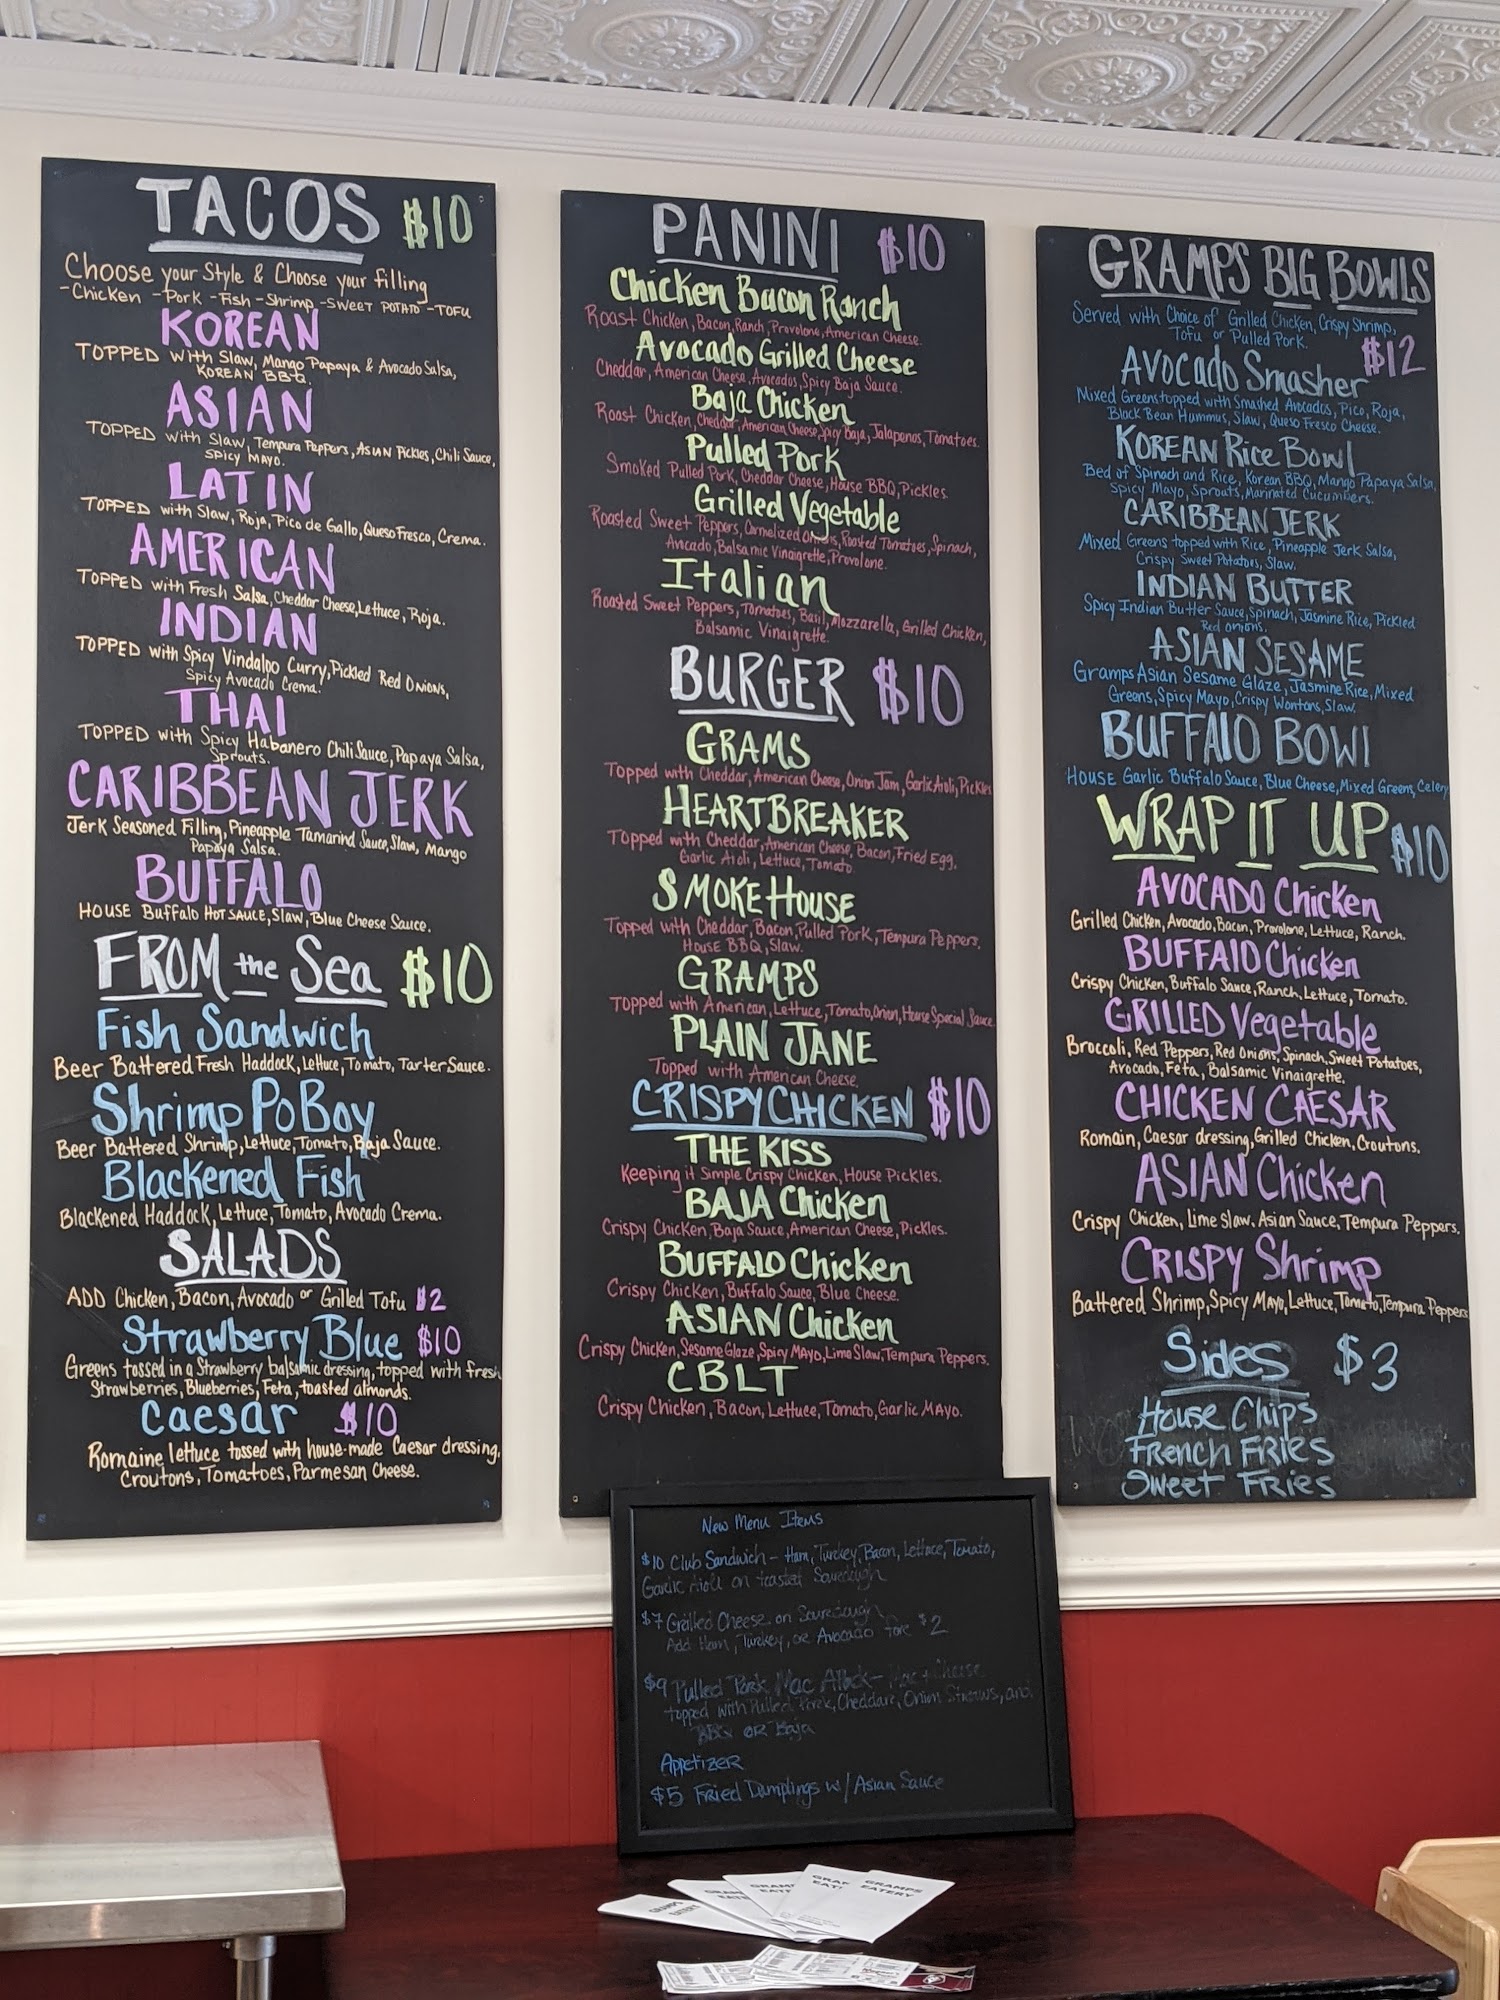 TACOS $10
Choose your Style & Choose your filling
-Chicken -Pork -Fish -Shrimp -SWEET POTATO -TOFU
KOREAN
TOPPED with Slaw, Mango Papaya & Avocado Salsa,
KOREAN BBQ.
ASIAN
TOPPED with Slaw, Tempura Peppers, ASIAN Pickles, Chili Sauce,
SPICY MAYO.
LATIN
TOPPED with Slaw, Roja, Pico de Gallo, Queso Fresco, Crema.
AMERICAN
TOPPED with Fresh Salsa, Cheddar Cheese, Lettuce, Roja.
INDIAN
TOPPED with Spicy Vindaloo Curry, Pickled Red Onions,
Spicy Avocado Crema.
THAI
TOPPED with Spicy Habanero Chili Sauce, Papaya Salsa,
Sprouts.
CARIBBEAN JERK
Jerk Seasoned Filling, Pineapple Tamarind Sauce, Slaw, Mango
Papaya Salsa.
BUFFALO
HOUSE Buffalo HOT SAUCE, Slaw, Blue Cheese Sauce.
FROM the Sea $10
Fish Sandwich
Beer Battered Fresh Haddock, Lettuce, Tomato, Tarter Sauce.
Shrimp Po Boy
Beer Battered Shrimp, Lettuce, Tomato, Baja Sauce.
Blackened Fish
Blackened Haddock, Lettuce, Tomato, Avocado Crema.
SALADS
ADD Chicken, Bacon, Avocado or Grilled Tofu $2
Strawberry Blue $10
Greens tossed in a Strawberry balsamic dressing, topped with fresh
Strawberries, Blueberries, Feta, toasted almonds.
Caesar $10
Romaine lettuce tossed with house-made Caesar dressing,
Croutons, Tomatoes, Parmesan Cheese.
PANINI $10
Chicken Bacon Ranch
Roast Chicken, Bacon, Ranch, Provolone, American Cheese.
Avocado Grilled Cheese
Cheddar, American Cheese, Avocados, Spicy Baja Sauce.
Baja Chicken
Roast Chicken, Cheddar, American Cheese, Spicy Baja, Jalapenos, Tomatoes.
Pulled Pork
Smoked Pulled Pork, Cheddar Cheese, House BBQ, Pickles.
Grilled Vegetable
Roasted Sweet Peppers, Carmelized Onions, Roasted Tomatoes, Spinach,
Avocado, Balsamic Vinaigrette, Provolone.
Italian
Roasted Sweet Peppers, Tomatoes, Basil, Mozzarella, Grilled Chicken,
Balsamic Vinaigrette.
BURGER $10
GRAMS
Topped with Cheddar, American Cheese, Onion Jam, Garlic Aioli, Pickles
HEARTBREAKER
Topped with Cheddar, American Cheese, Bacon, Fried Egg,
Garlic Aioli, Lettuce, Tomato.
SMOKE HOUSE
Topped with Cheddar, Bacon, Pulled Pork, Tempura Peppers,
House BBQ, Slaw.
GRAMPS
Topped with American, Lettuce, Tomato, Onion, House Special Sauce
PLAIN JANE
Topped with American Cheese.
CRISPY CHICKEN $10
THE KISS
Keeping it Simple Crispy Chicken, House Pickles.
BAJA Chicken
Crispy Chicken, Baja Sauce, American Cheese, Pickles.
BUFFALO Chicken
Crispy Chicken, Buffalo Sauce, Blue Cheese.
ASIAN Chicken
Crispy Chicken, Sesame Glaze, Spicy MAYO, Lime Slaw, Tempura Peppers.
CBLT
Crispy Chicken, Bacon, Lettuce, Tomato, Garlic MAYO.
GRAMPS BIG BOWLS
Served with Choice of Grilled Chicken, Crispy Shrimp,
Tofu or Pulled Pork.
$12
AVOCADO Smasher
Mixed Greens topped with Smashed Avocados, Pico, Roja,
Black Bean Hummus, Slaw, Queso Fresco Cheese.
KOREAN Rice Bowl
Bed of Spinach and Rice, Korean BBQ, Mango Papaya Salsa,
Spicy Mayo, Sprouts, Marinated Cucumbers.
CARIBBEAN JERK
Mixed Greens topped with Rice, Pineapple Jerk Salsa,
Crispy Sweet Potatoes, Slaw.
INDIAN BUTTER
Spicy Indian Butter Sauce, Spinach, Jasmine Rice, Pickled
Red onions.
ASIAN SESAME
Gramps Asian Sesame Glaze, Jasmine Rice, Mixed
Greens, Spicy Mayo, Crispy Wontons, Slaw.
BUFFALO BOWl
HOUSE Garlic Buffalo Sauce, Blue Cheese, Mixed Greens, Celery
WRAP IT UP $10
AVOCADO Chicken
Grilled Chicken, Avocado, Bacon, Provolone, Lettuce, Ranch.
BUFFAlO Chicken
Crispy Chicken, Buffalo Sauce, Ranch, Lettuce, Tomato.
GRILLED Vegetable
Broccoli, Red Peppers, Red Onions, Spinach, Sweet Potatoes,
Avocado, Feta, Balsamic Vinaigrette.
CHICKEN CAESAR
Romain, Caesar dressing, Grilled Chicken, Croutons.
ASIAN Chicken
Crispy Chicken, Lime Slaw, Asian Sauce, Tempura Peppers.
CRISPY Shrimp
Battered Shrimp, Spicy Mayo, Lettuce, Tomato, Tempura Peppers
Sides $3
House Chips
French Fries
Sweet Fries
New Menu Items
$10 Club Sandwich - Ham, Turkey, Bacon, Lettuce, Tomato,
Garlic Aioli on toasted Sourdough
$7 Grilled Cheese on Sourdough
Add Ham, Turkey, or Avocado for $2
$9 Pulled Pork Mac Attack - Mac + Cheese
topped with Pulled Pork, Cheddar, Onion Straws, and
BBQ OR Baja
Appetizer
$5 Fried Dumplings w/ Asian Sauce
GRAMPS
EATERY